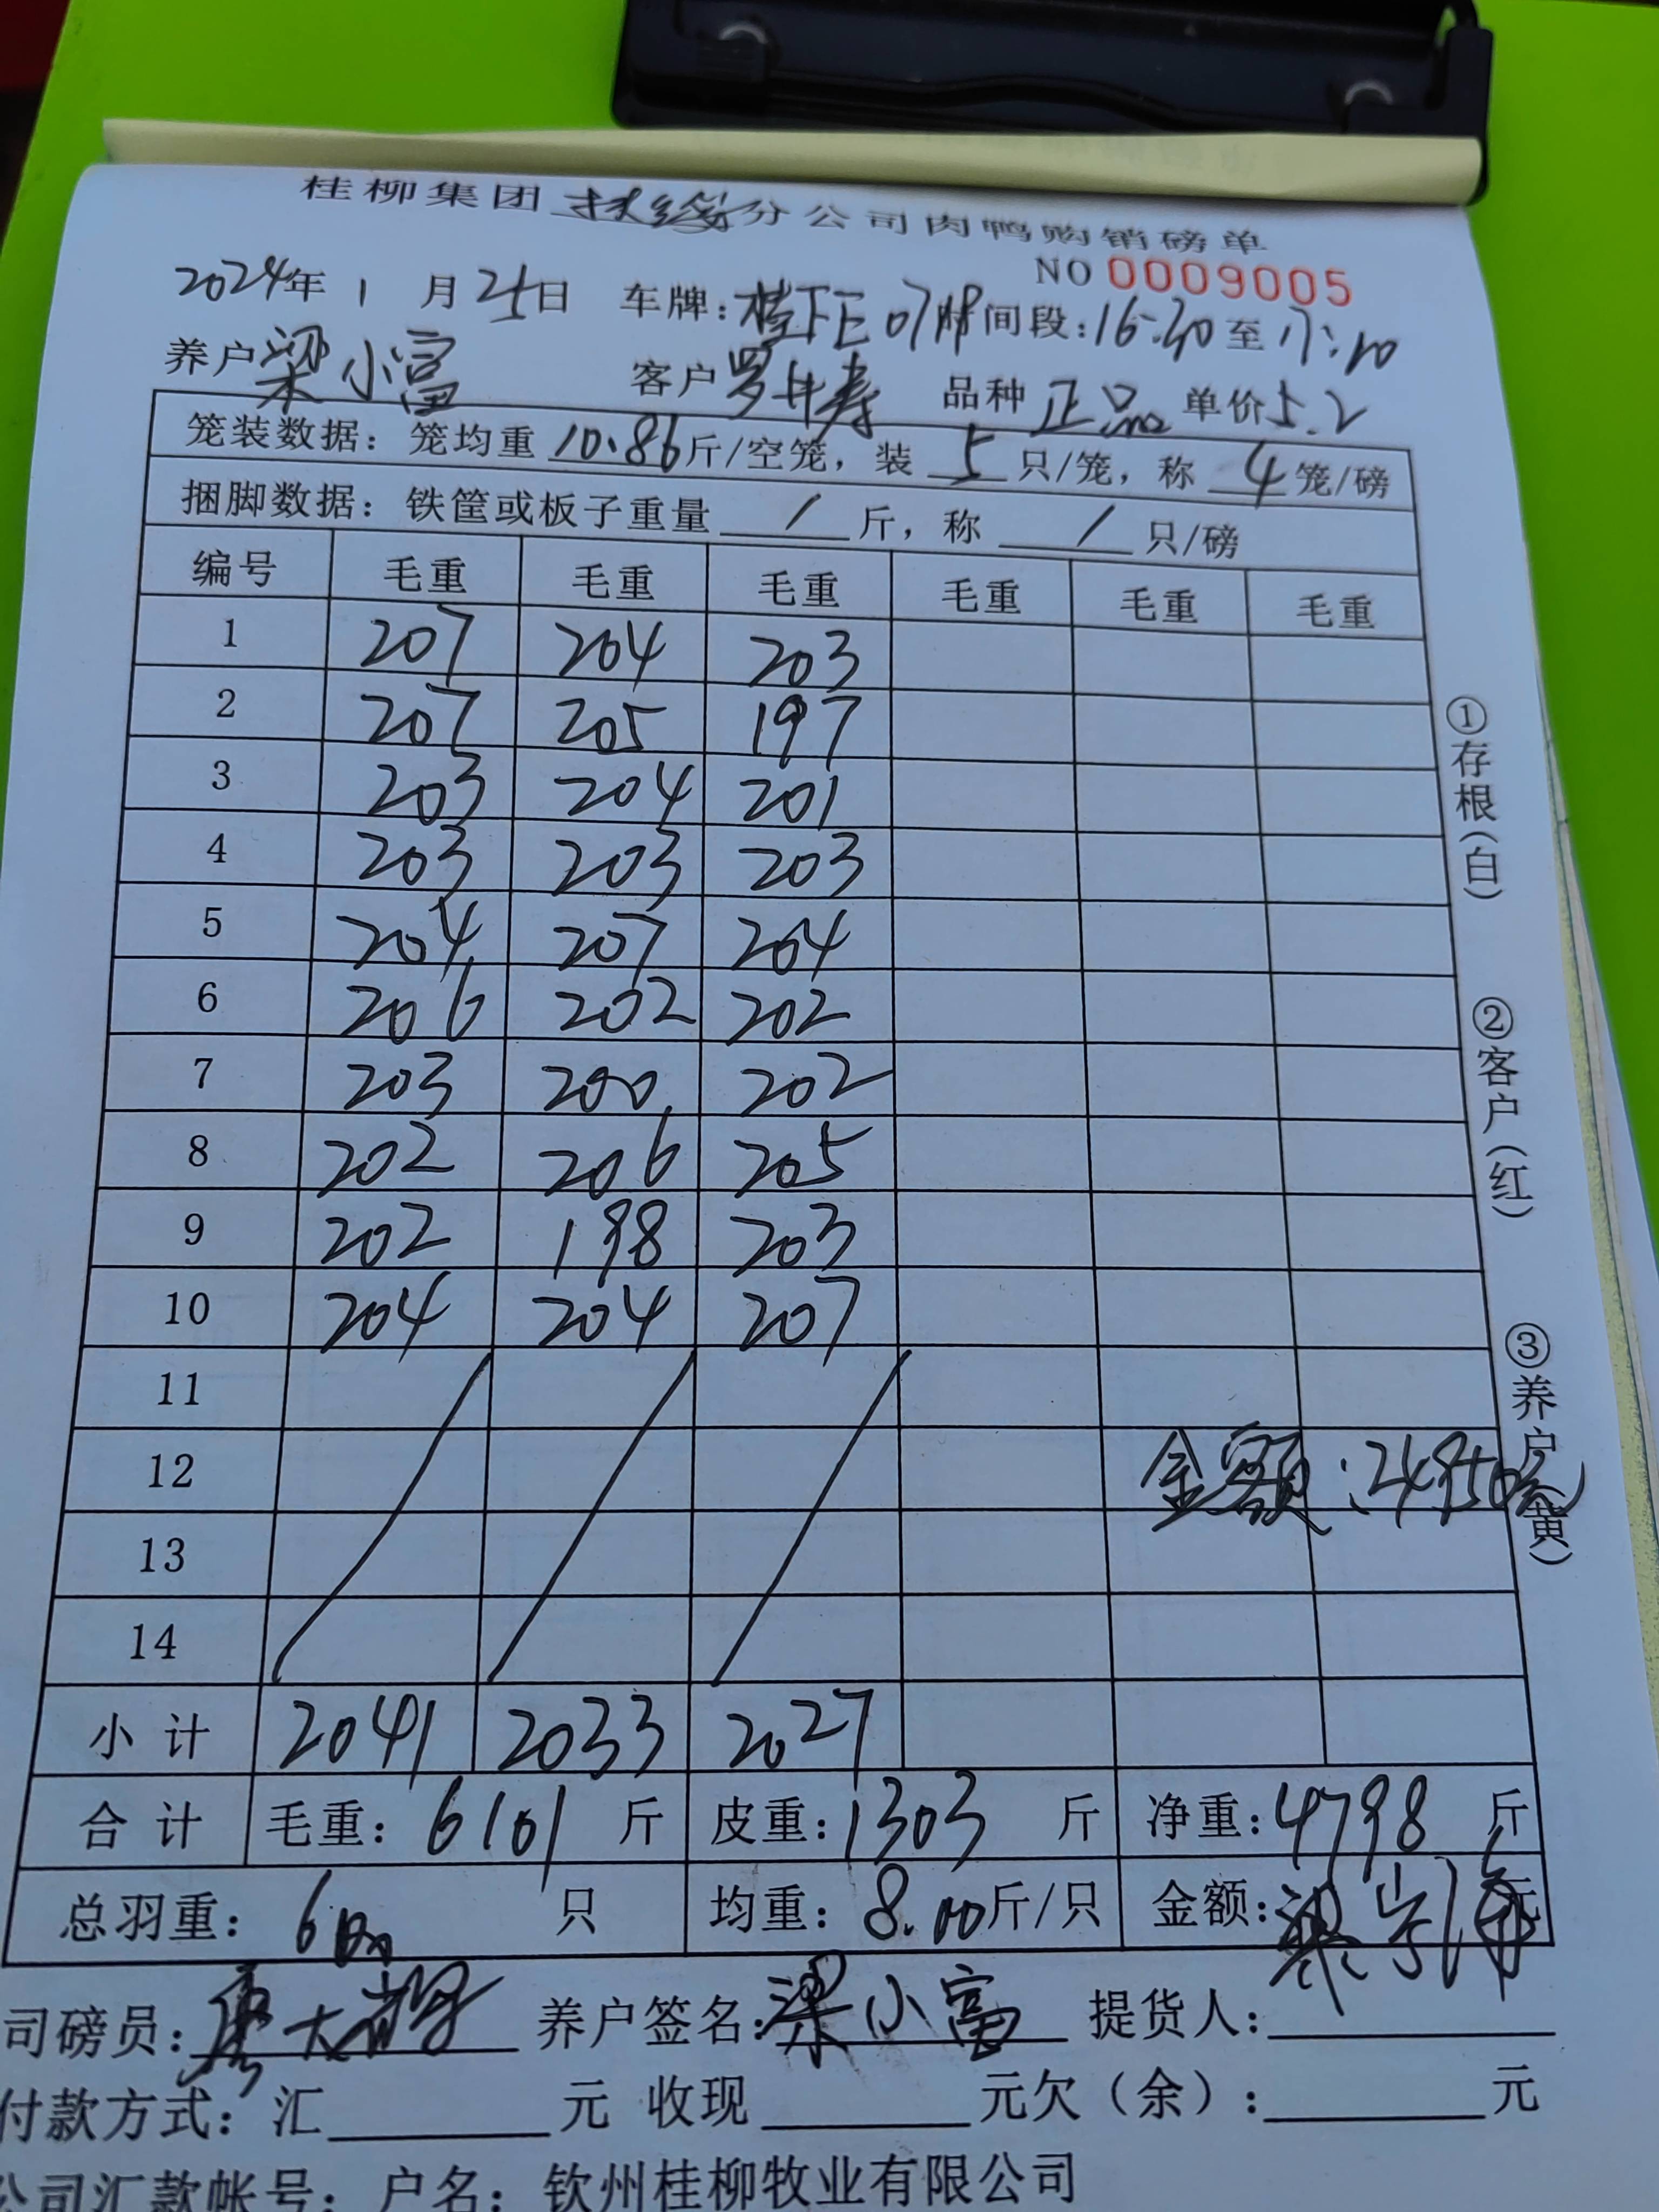 桂柳集团扶绥分公司肉鸭购销磅单
NO 0009005
2024年 1 月 25日 车牌: 间段:16:30 至 17:10
养户 梁小富 客户 罗 寿 品种 正品 单价 5.2
笼装数据: 笼均重 10.86 斤/空笼, 装 5 只/笼, 称 4 笼/磅
捆脚数据: 铁筐或板子重量 / 斤, 称 / 只/磅
编号 毛重 毛重 毛重 毛重 毛重 毛重
1 207 204 203
2 207 205 197
3 203 204 201
4 203 203 203
5 204 207 204
6 206 202 202
7 203 200 202
8 202 206 205
9 202 198 203
10 204 204 207
11
12 金额:24950元
13
14
小计 2041 2033 2027
合计 毛重: 6101 斤 皮重: 1303 斤 净重: 4798 斤
总羽重: 600 只 均重: 8.00 斤/只 金额: 元
司磅员: 养户签名: 梁小富 提货人:
付款方式: 汇 元 收现 元欠(余): 元
公司汇款帐号: 户名: 钦州桂柳牧业有限公司
①存根(白) ②客户(红) ③养户(黄)